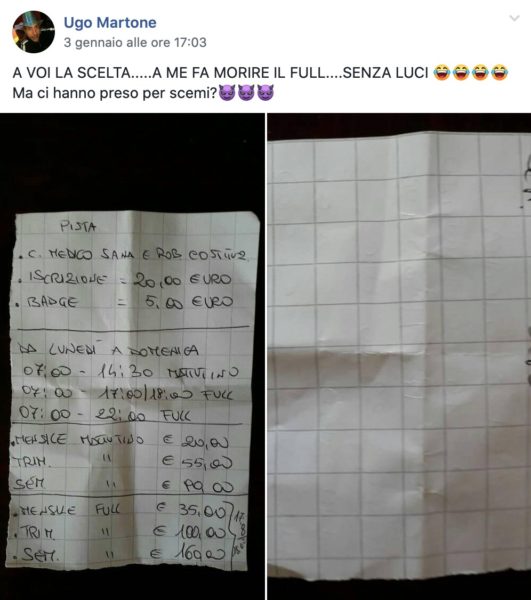 Ugo Martone
3 gennaio alle ore 17:03
A VOI LA SCELTA.....A ME FA MORIRE IL FULL....SENZA LUCI 😂😂😂😂
Ma ci hanno preso per scemi?😈😈😈
PISTA
. C. MEDICO SANA E ROB COSTITUZ.
. ISCRIZIONE = 20,00 EURO
. BADGE = 5,00 EURO
DA LUNEDÌ A DOMENICA
07:00 - 14:30 MATTUTINO
07:00 - 17:00/18:00 FULL
07:00 - 22:00 FULL
. MENSILE MATTUTINO € 20,00
TRIM. " € 55,00
SEM " € 90,00
. MENSILE FULL € 35,00
. TRIM. " € 100,00
. SEM. " € 160,00